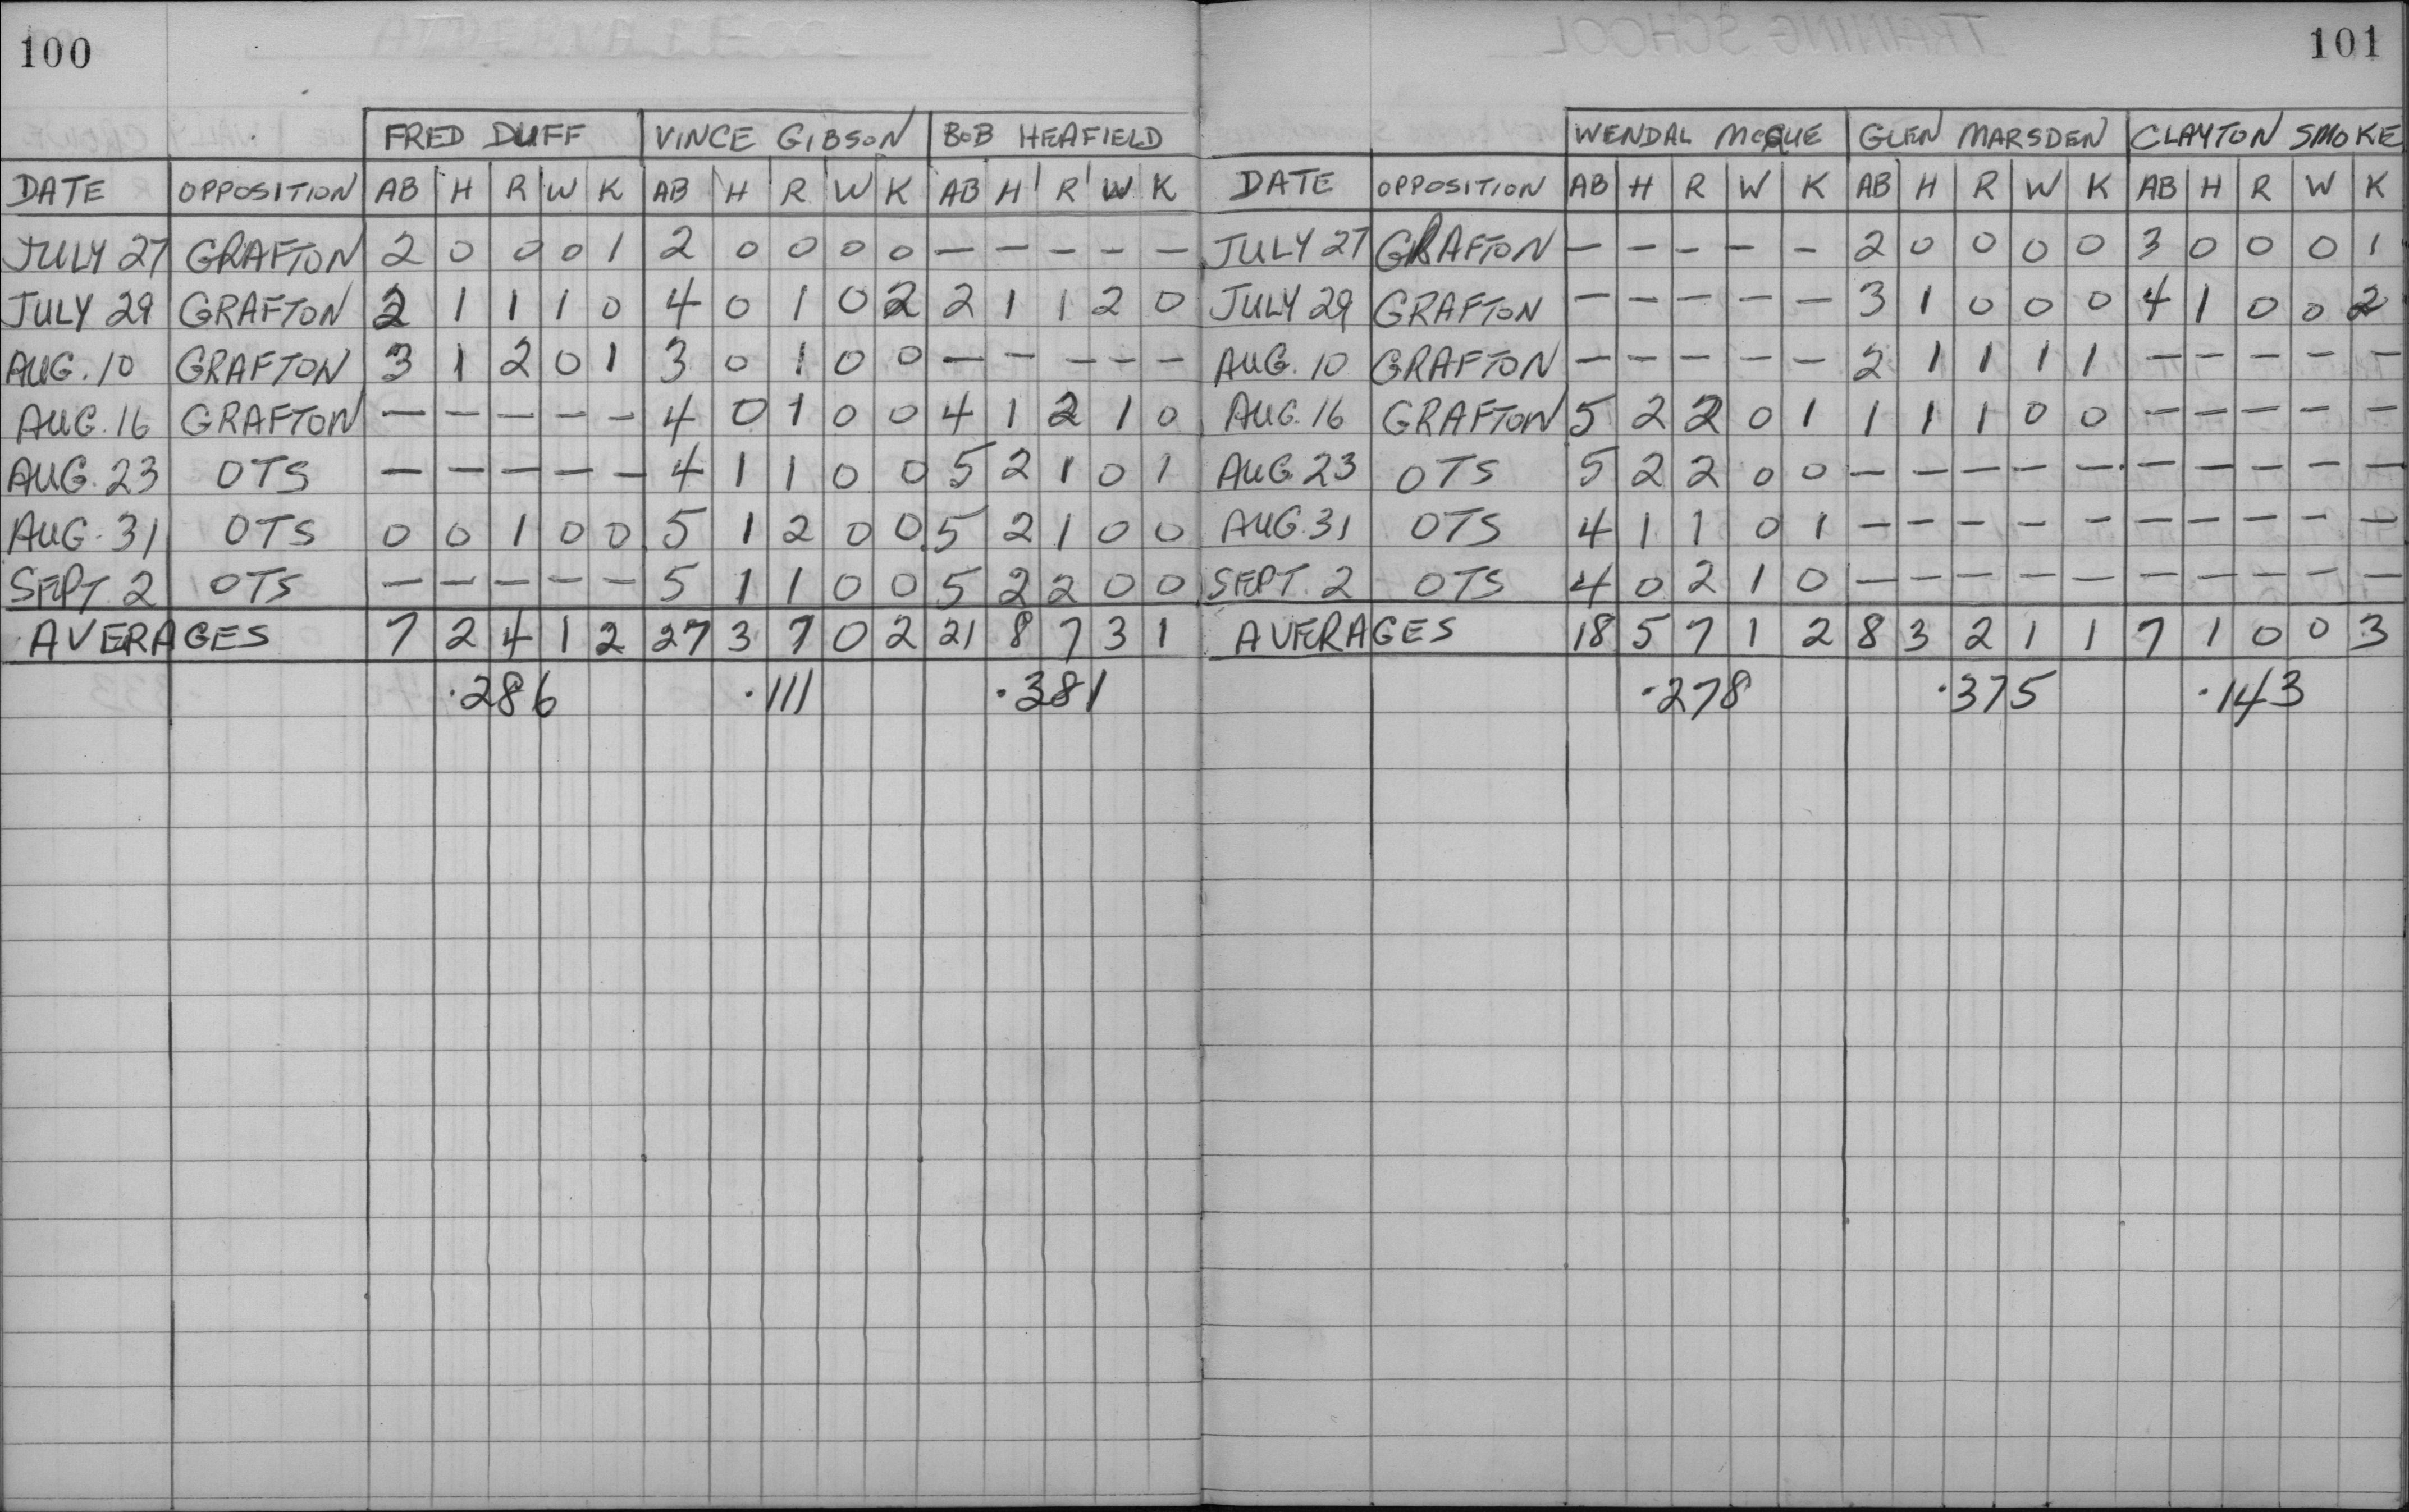 100
FRED DUFF VINCE GIBSON BOB HEAFIELD
DATE OPPOSITION AB H R W K AB H R W K AB H R W K
JULY 27 GRAFTON 2 0 0 0 1 2 0 0 0 0 — — — — —
JULY 29 GRAFTON 2 1 1 1 0 4 0 1 0 2 2 1 1 2 0
AUG. 10 GRAFTON 3 1 2 0 1 3 0 1 0 0 — — — — —
AUG. 16 GRAFTON — — — — — 4 0 1 0 0 4 1 2 1 0
AUG. 23 OTS — — — — — 4 1 1 0 0 5 2 1 0 1
AUG. 31 OTS 0 0 1 0 0 5 1 2 0 0 5 2 1 0 0
SEPT. 2 OTS — — — — — 5 1 1 0 0 5 2 2 0 0
AVERAGES 7 2 4 1 2 27 3 7 0 2 21 8 7 3 1
.286 .111 .381
TRAINING SCHOOL
101
WENDAL McQUE GLEN MARSDEN CLAYTON SMOKE
DATE OPPOSITION AB H R W K AB H R W K AB H R W K
JULY 27 GRAFTON — — — — — 2 0 0 0 0 3 0 0 0 1
JULY 29 GRAFTON — — — — — 3 1 0 0 0 4 1 0 0 2
AUG. 10 GRAFTON — — — — — 2 1 1 1 1 — — — — —
AUG. 16 GRAFTON 5 2 2 0 1 1 1 1 0 0 — — — — —
AUG. 23 OTS 5 2 2 0 0 — — — — — — — — — —
AUG. 31 OTS 4 1 1 0 1 — — — — — — — — — —
SEPT. 2 OTS 4 0 2 1 0 — — — — — — — — — —
AVERAGES 18 5 7 1 2 8 3 2 1 1 7 1 0 0 3
.278 .375 .143